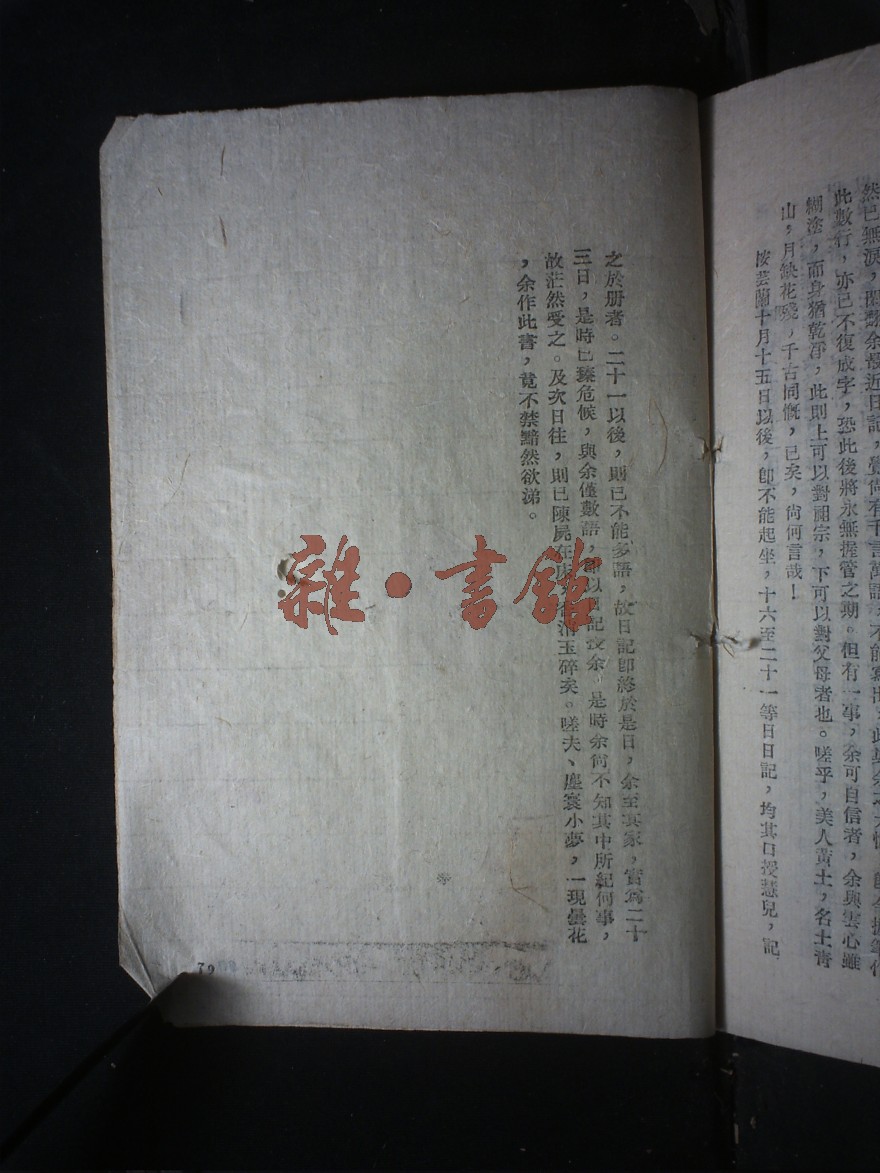 然已無淚，
此數行，亦已不復成字，恐此後將永無握管之期。但有一事，余可自信者，余與雲心雖
糊塗，而身猶乾淨，此則上可以對祖宗，下可以對父母者也。嗟乎，美人黃土，名士青
山，月缺花殘，千古同慨，已矣，尙何言哉！
按芸蘭十月十五日以後，卽不能起坐，十六至二十一等日日記，均其口授慧兒，記
之於册者。二十一以後，則已不能多語，故日記卽終於是日，余至其家，實爲二十
三日，是時已臻危候，與余僅數語，卽以日記授余。是時余何不知其中所紀何事，
故茫然受之。及次日往，則已陳屍在床，香消玉碎矣。嗟夫、塵寰小夢，一現曇花
，余作此書，竟不禁黯然欲涕。
雜·書館
79